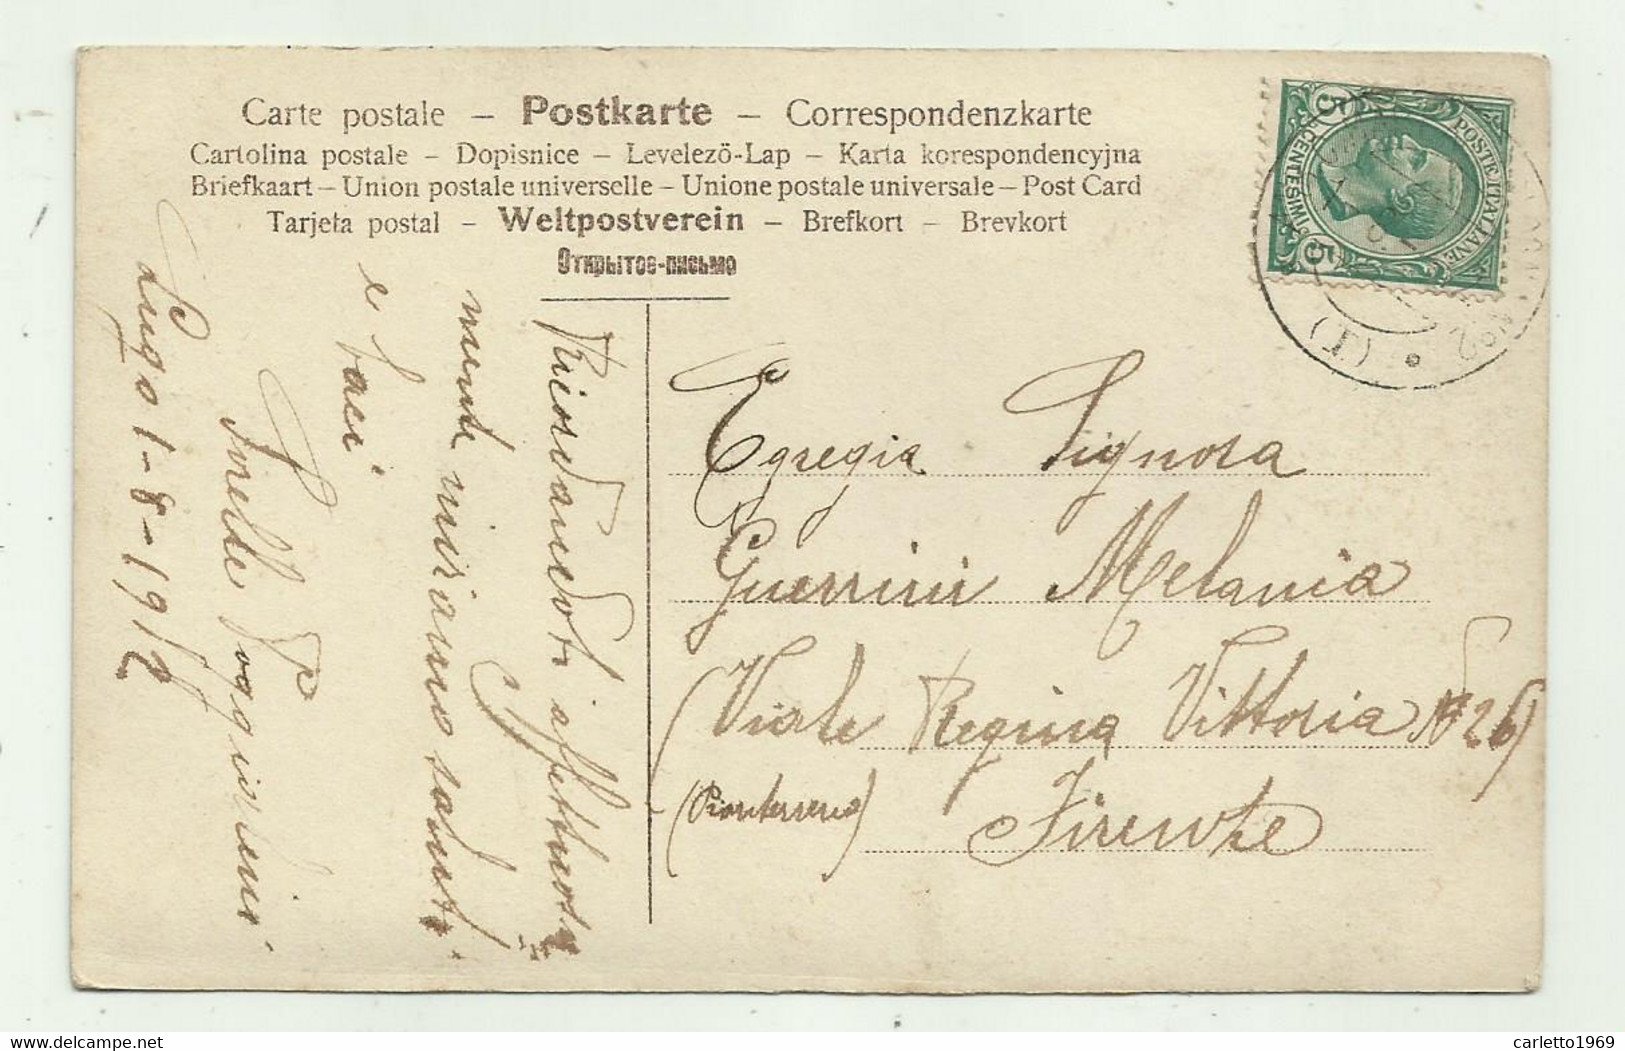 Carte postale – Postkarte – Correspondenzkarte
Cartolina postale – Dopisnice – Levelező-Lap – Karta korespondencyjna
Briefkaart – Union postale universelle – Unione postale universale – Post Card
Tarjeta postal – Weltpostverein – Brefkort – Brevkort
Открытое-письмо
POSTE ITALIANE
CENTESIMI
5 5
(1)
Ricordandoti affettuosa
mente inviamo saluti
e baci
Poggiolini
Lugo 1-8-1912
Egregia Signora
Guerrini Melania
(Viale Regina Vittoria No 26)
(Pianterreno)
Firenze
www.delcampe.net
carletto1969